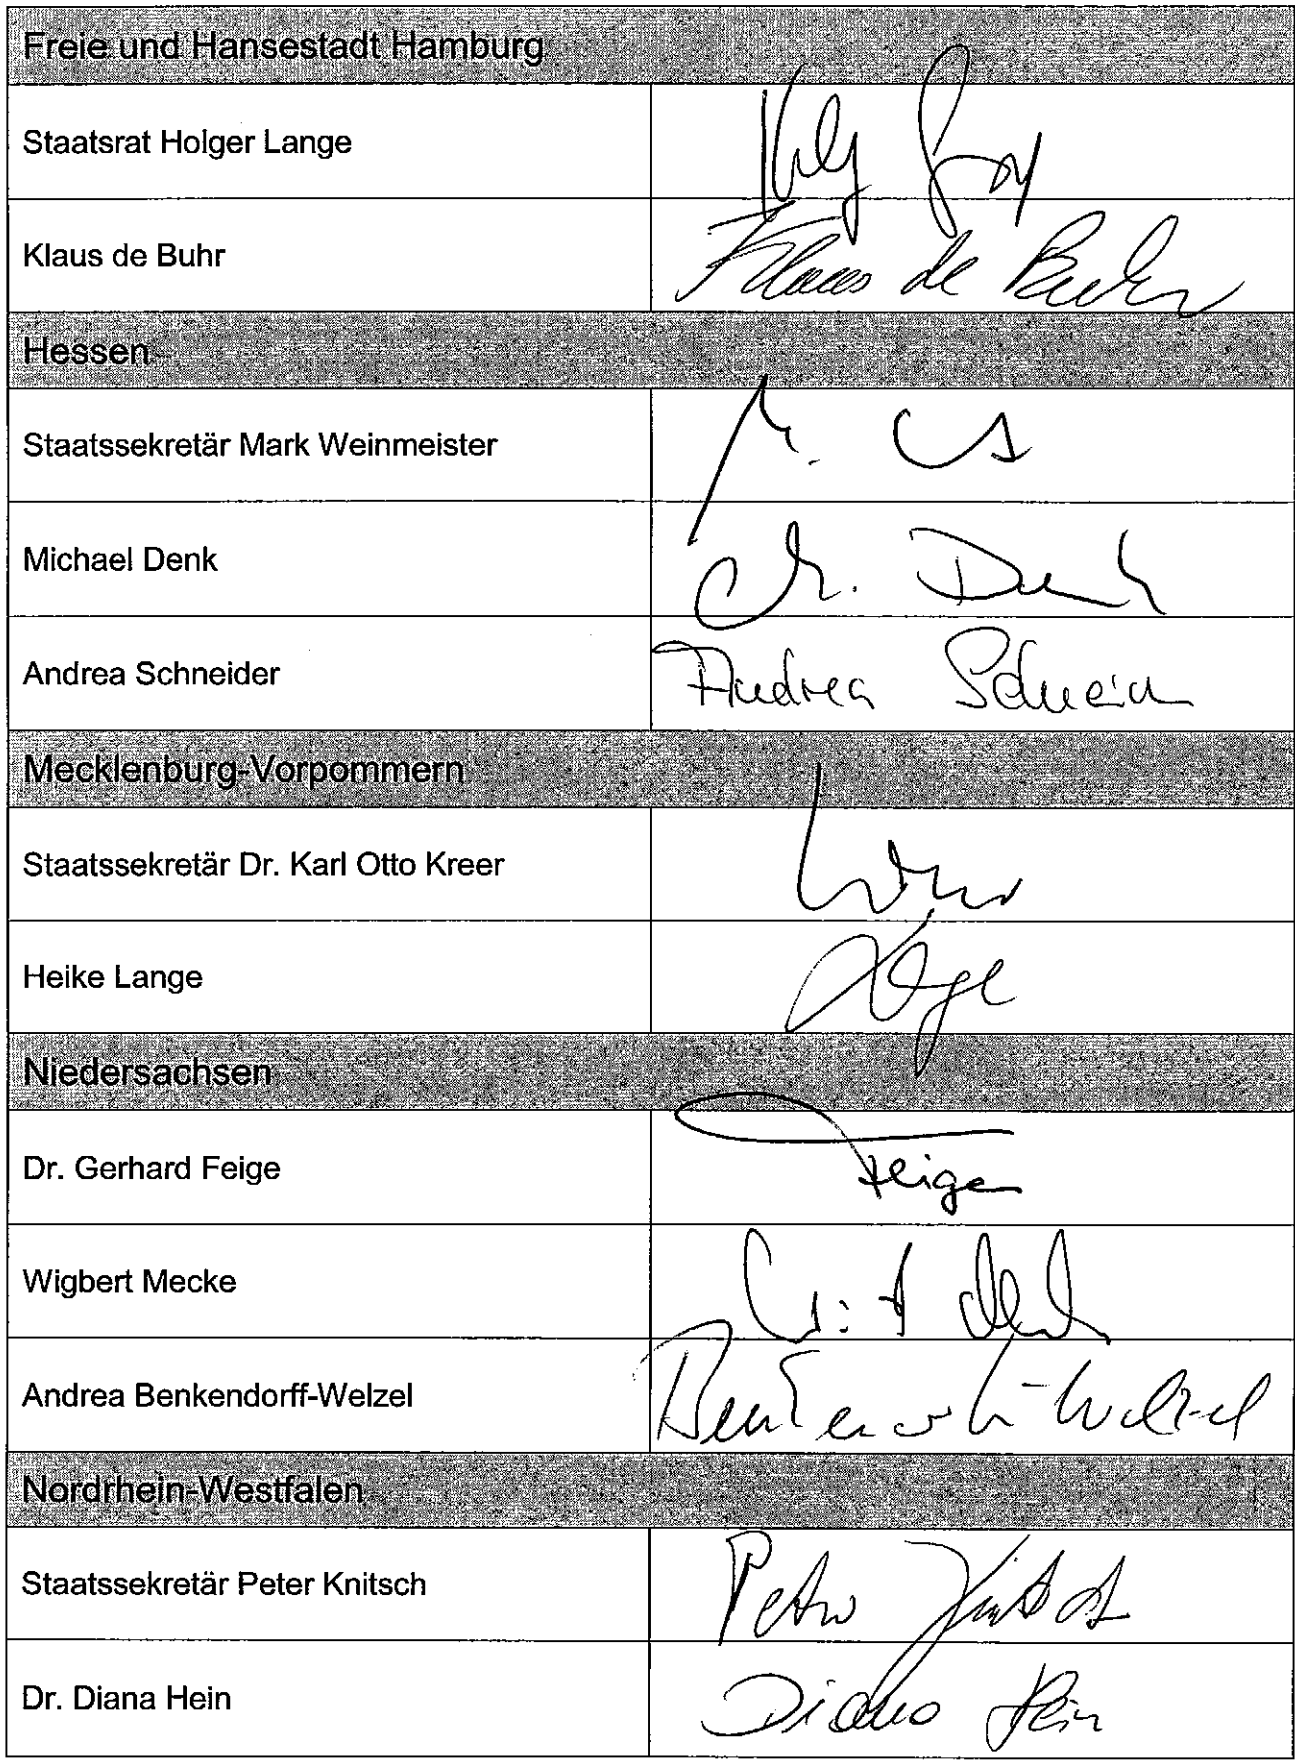 Freie und Hansestadt Hamburg
Staatsrat Holger Lange
Klaus de Buhr Klaus de Buhr
Hessen
Staatssekretär Mark Weinmeister
Michael Denk M. Denk
Andrea Schneider Andrea
Mecklenburg-Vorpommern
Staatssekretär Dr. Karl Otto Kreer
Heike Lange
Niedersachsen
Dr. Gerhard Feige Feige
Wigbert Mecke
Andrea Benkendorff-Welzel
Nordrhein-Westfalen
Staatssekretär Peter Knitsch Peter Knitsch
Dr. Diana Hein Diana Hein